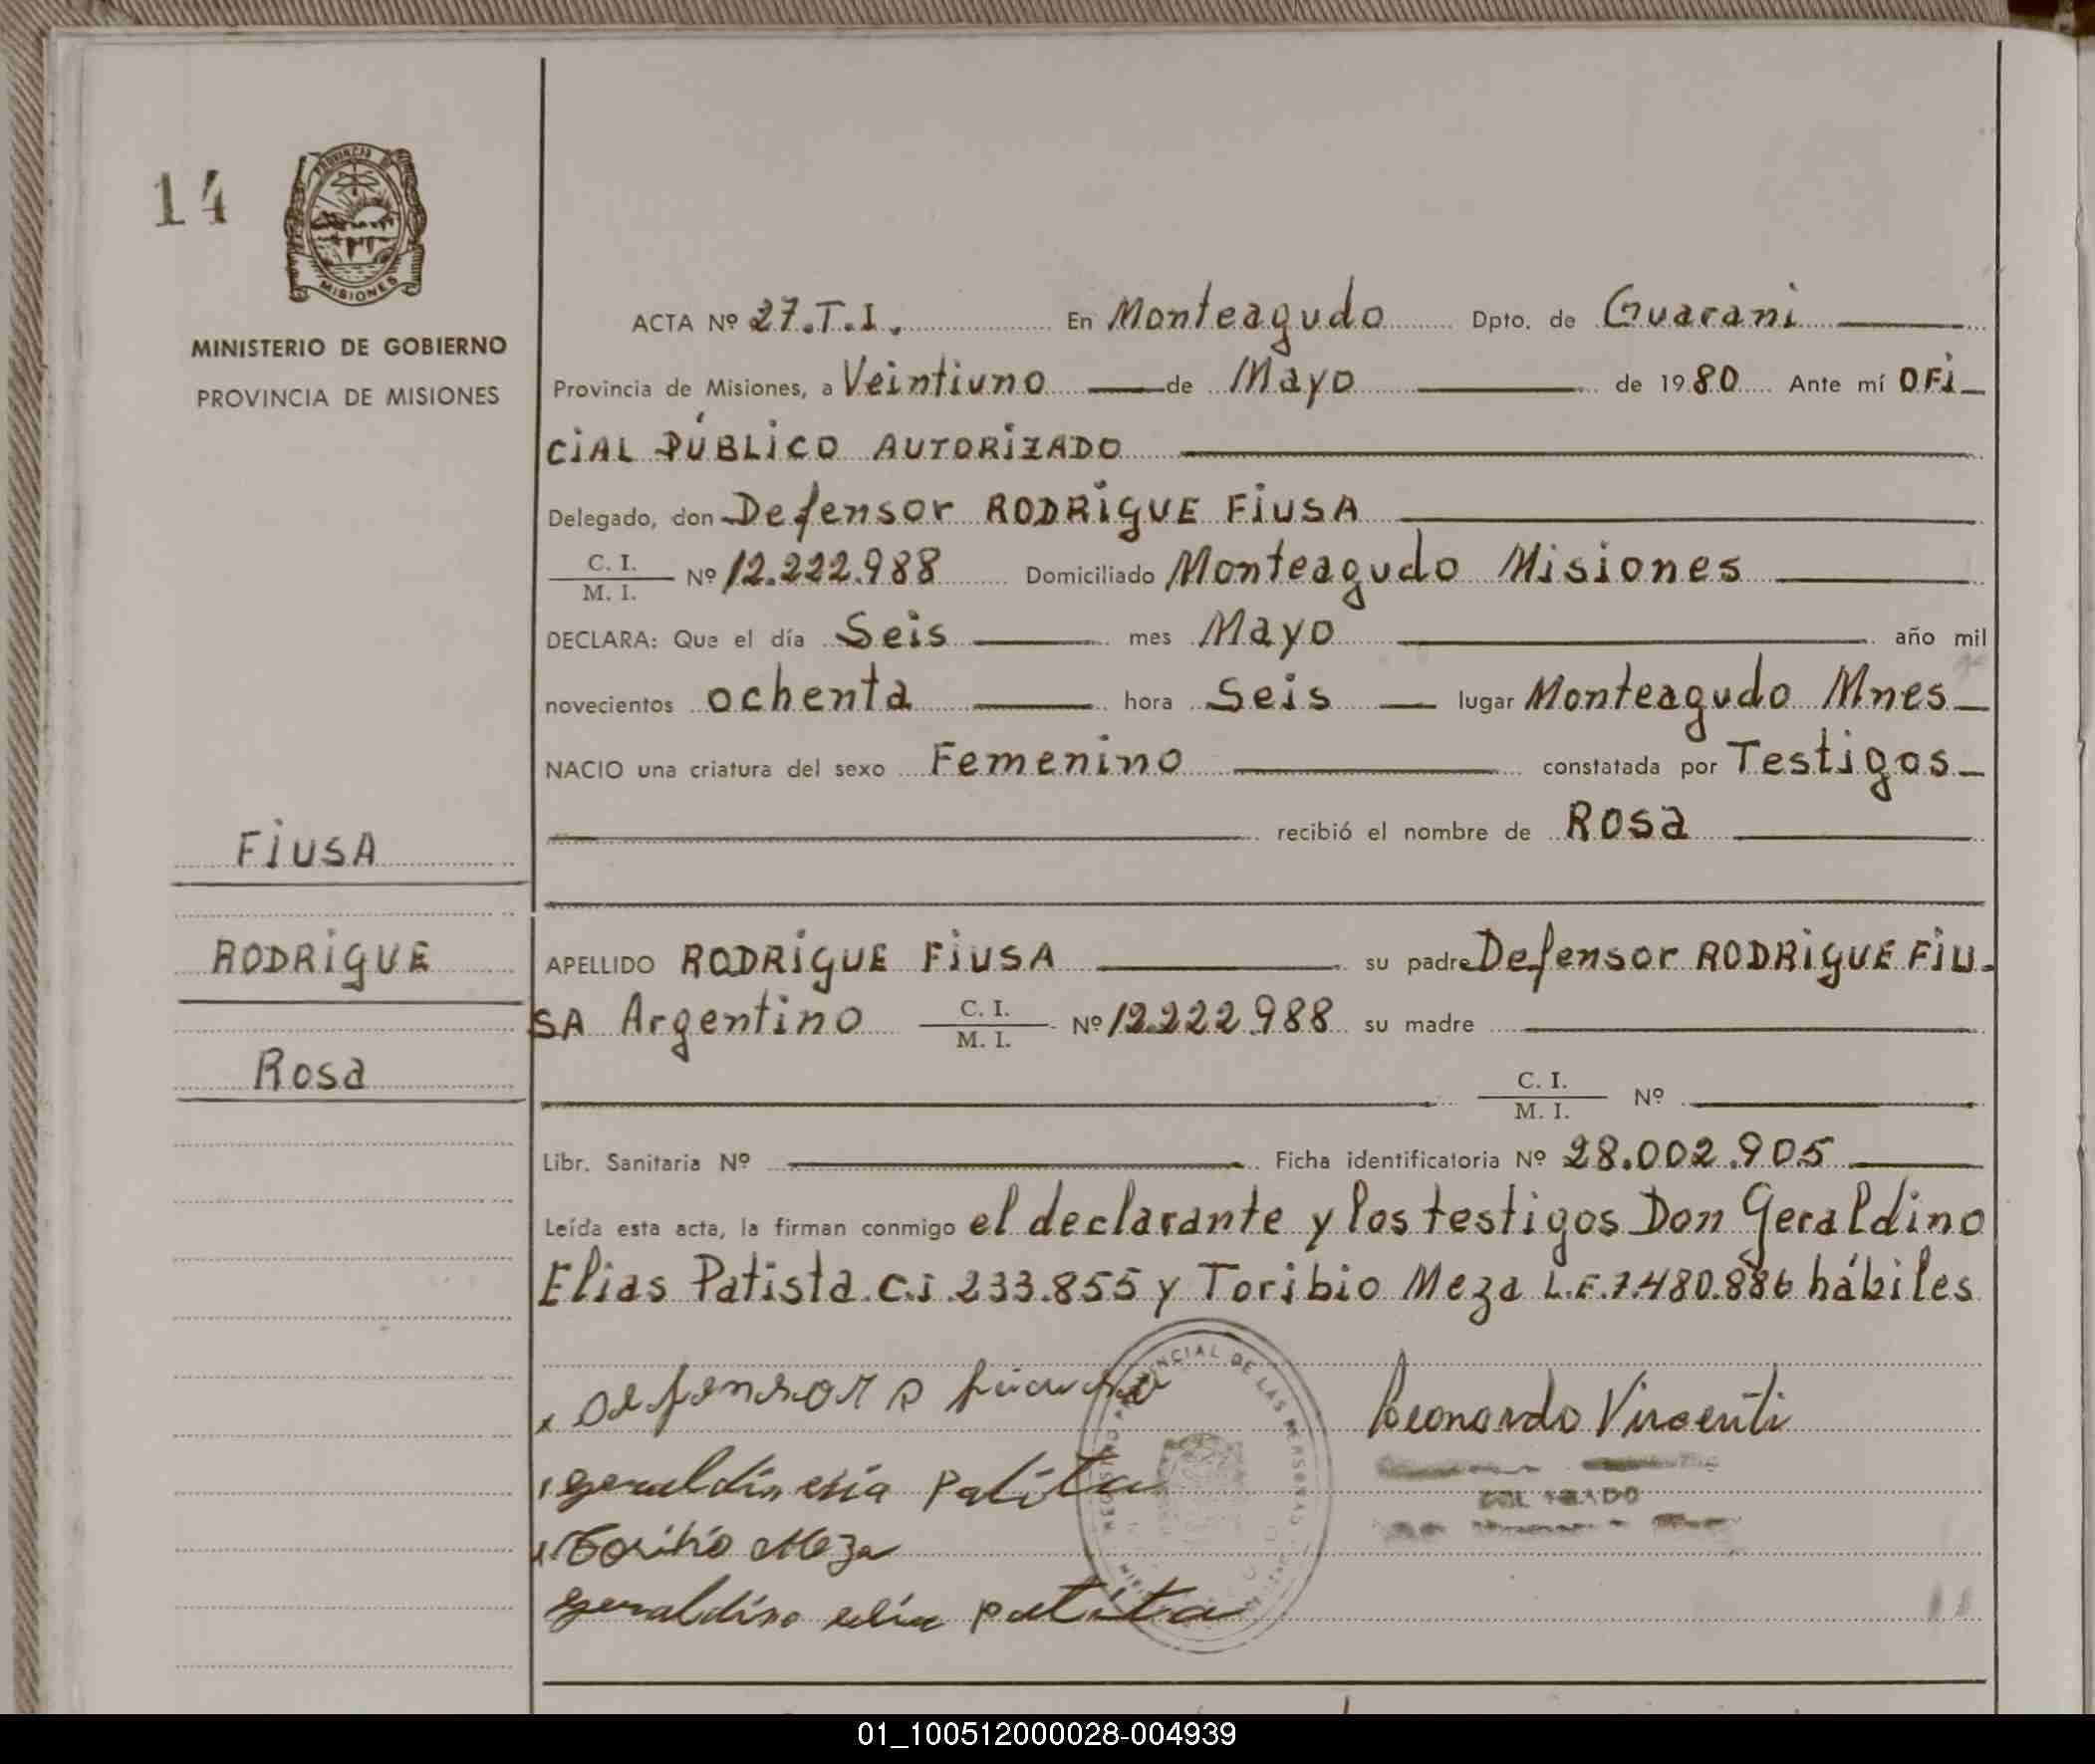 14
PROVINCIA DE
MISIONES
MINISTERIO DE GOBIERNO
PROVINCIA DE MISIONES
ACTA Nº 27.T.I. En Monteagudo Dpto. de Guarani
Provincia de Misiones, a Veintiuno de Mayo de 1980 Ante mí OFi
CiAL PÚBLiCO AUTORiZADO
Delegado, don Defensor RODRiGUE FiUSA
C. I.
M. I. Nº 12.222.988 Domiciliado Monteagudo Misiones
DECLARA: Que el día Seis mes Mayo año mil
novecientos ochenta hora Seis lugar Monteagudo Mnes
NACIO una criatura del sexo Femenino constatada por Testigos
recibió el nombre de Rosa
FiUSA
RODRiGUE
Rosa
APELLIDO RODRiGUE FiUSA su padre Defensor RODRiGUE FiU-
SA Argentino C. I.
M. I. Nº 12.222.988 su madre
C. I.
M. I. Nº
Libr. Sanitaria Nº Ficha identificatoria Nº 28.002.905
Leída esta acta, la firman conmigo el declarante y los testigos Don Geraldino
Elias Patista C.i. 233.855 y Toribio Meza L.E. 7.480.886 hábiles
Defensor R
Leonardo Vircenti
Toribio Meza
DE LAS PERSONAS
01_100512000028-004939